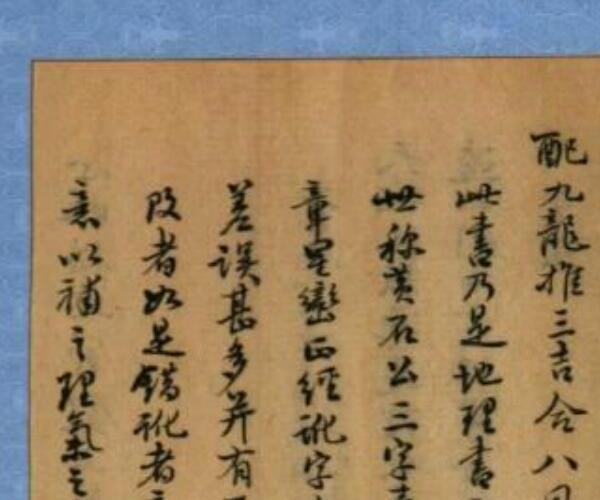 配九龍推三吉合八
此書乃是地理書
世称黄石公三字
章星巒正經訛字
差誤甚多并有
改者如是錯訛者
意以補之理氣之